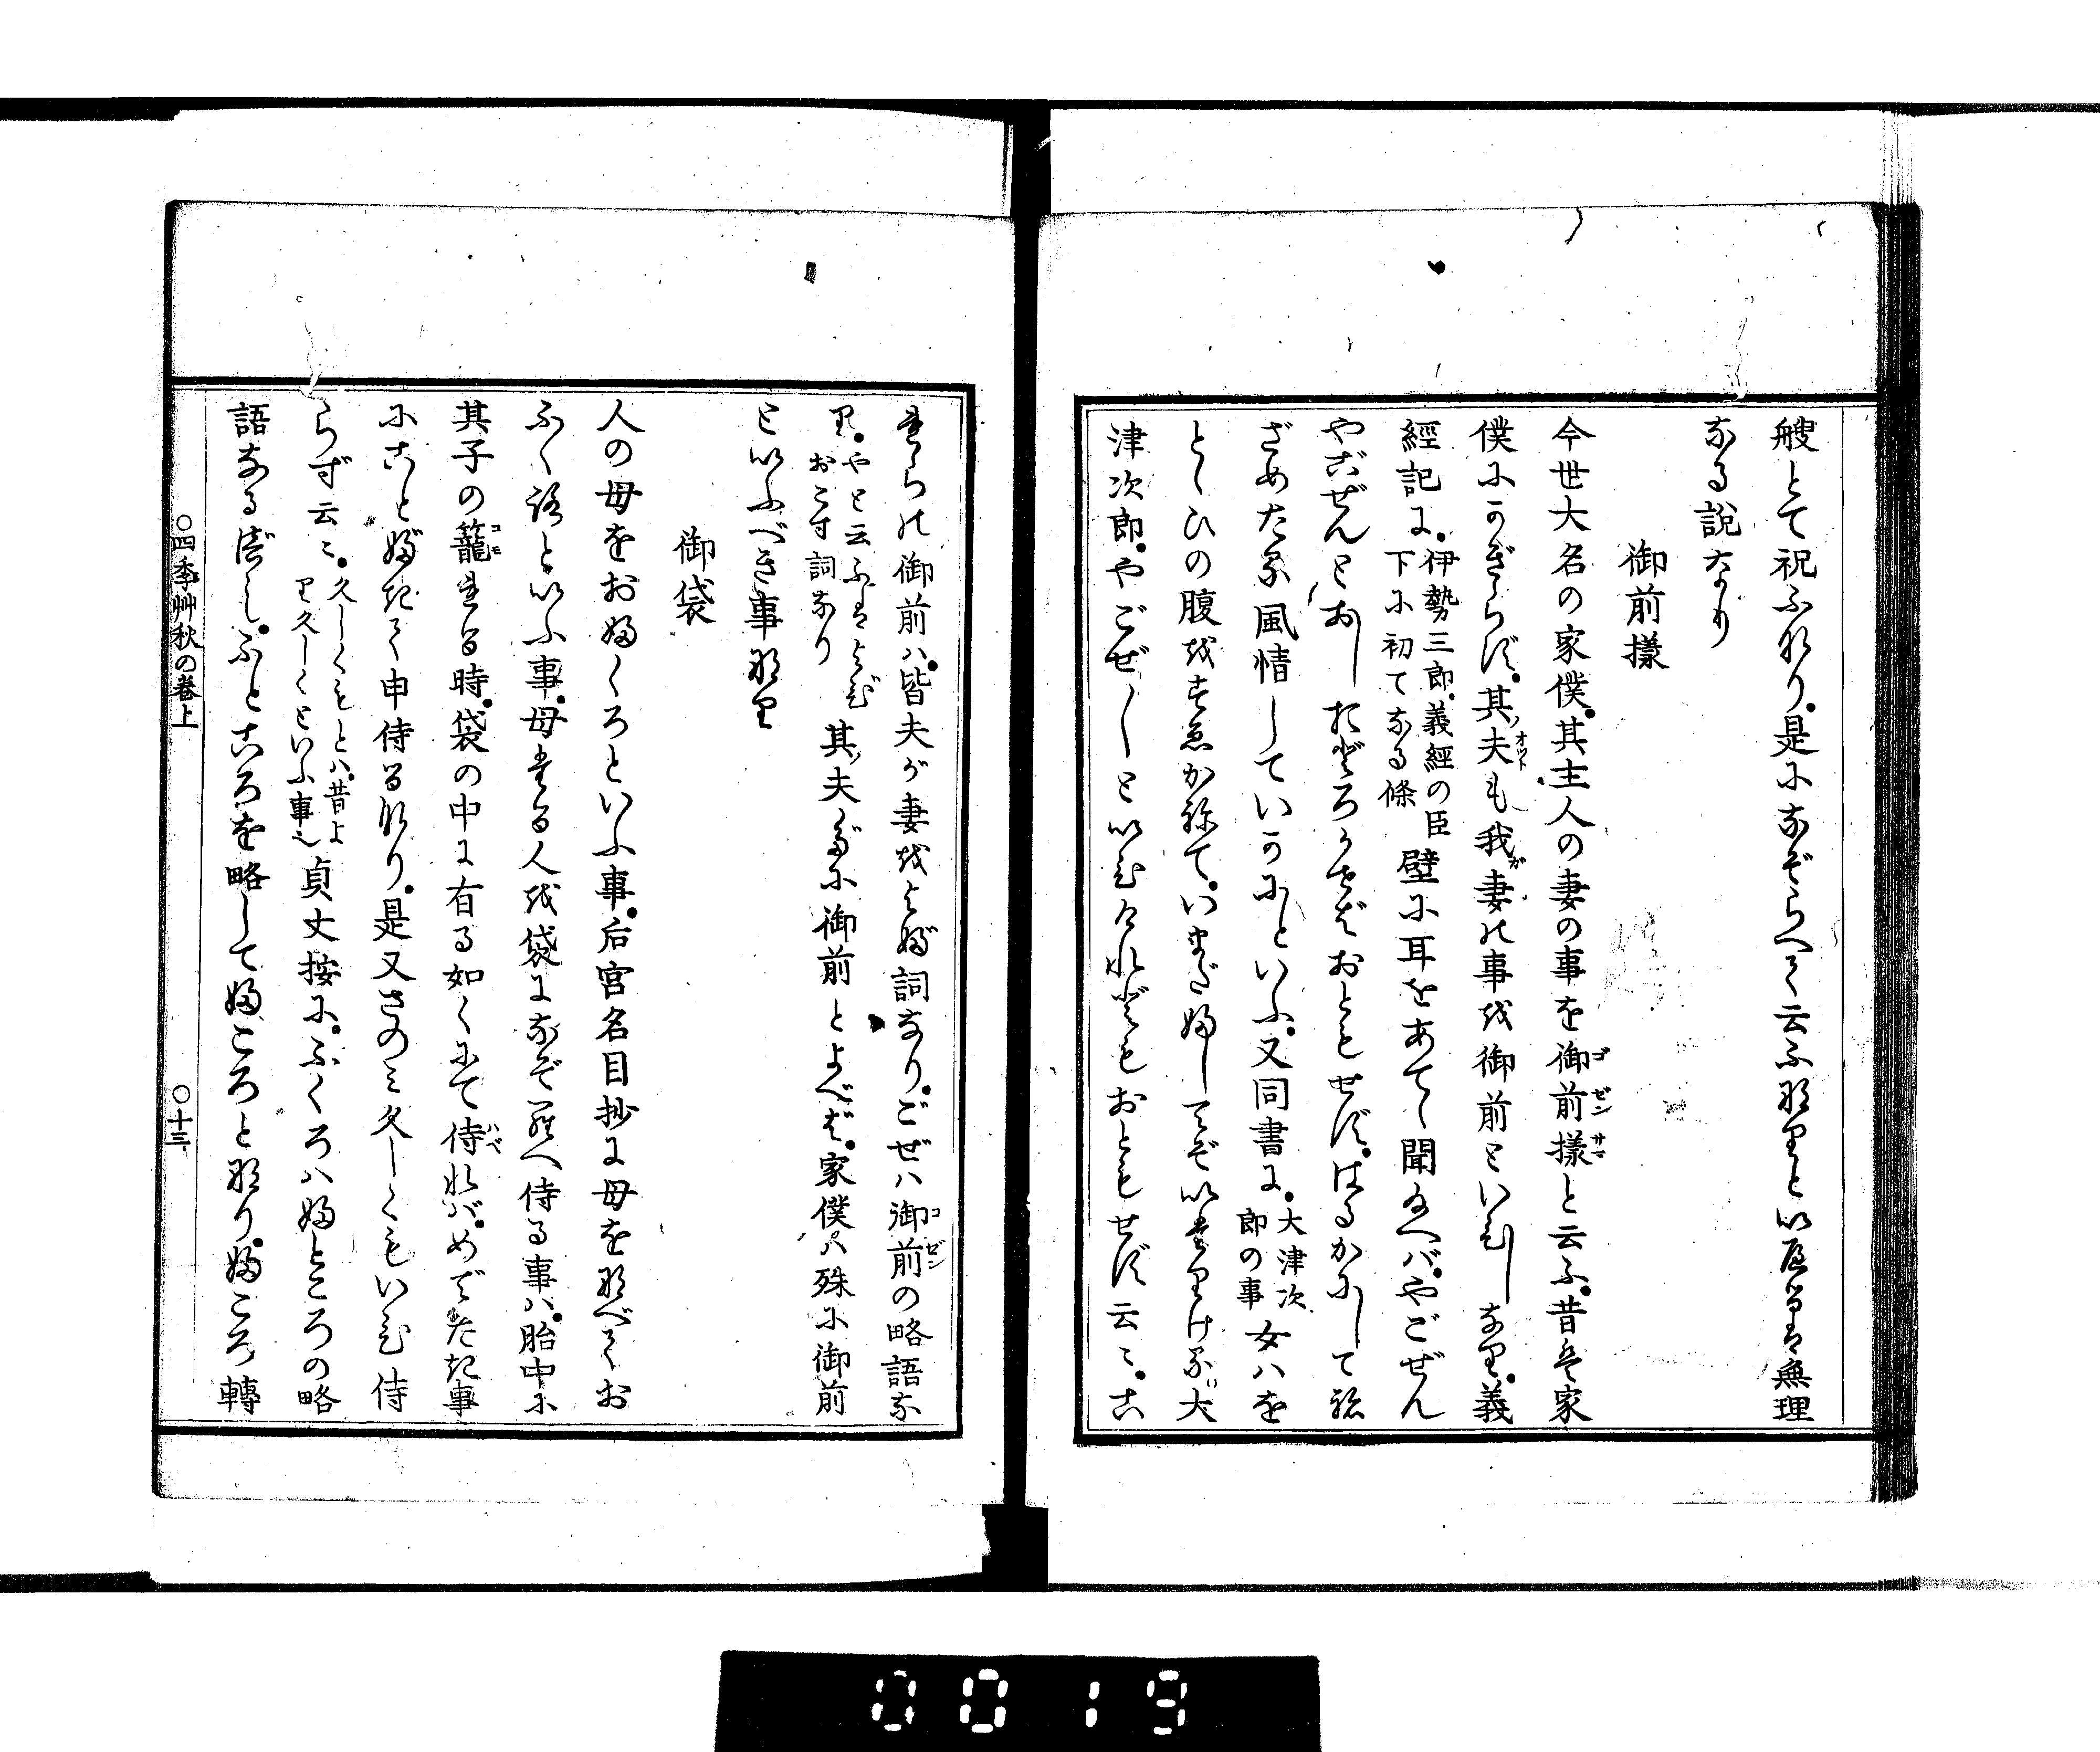 艘とて祝ふなり。是になぞらへて云ふなりといへるは無理
なる説なり
御前様
今世大名の家僕。其主人の妻の事を御前様と云ふ。昔は家
僕にかぎらず。其夫も我妻の事を御前といひしなり。義
經記に。伊勢三郎。義經の臣下に初てなる條 壁に耳をあてゝ聞給へバ。やごぜん
やごぜんとおしおどろかせばおともせず。はるかにして
ざめたる風情していかにといふ。又同書に。大津次郎の事 女ハを
とひの腹をすゑかねて。いまだ
津次郎。やごぜ〳〵といひけれどもおともせず云々。こ
れらの御前ハ。皆夫が妻をよぶ詞なり。ごぜハ御前の略語な
り。やと云ふはよびおこす詞なり 其夫だに御前とよべば。家僕ハ殊に御前
といふべき事なり
御袋
人の母をおふくろといふ事。后宮名目抄に母をなべてお
ふくろといふ事。母たる人を袋になぞらへ侍る事ハ。胎中に
其子の籠れる時。袋の中に有る如くにて侍れバ。めでたき事
にことぶきて申侍るなり。是又さのミ久しくもいひ侍
らず云々。久しくもとハ。昔より久しくといふ事也 貞丈按に。ふくろハふところの略
語なるべし。ふところを略してふころとなり。ふころ轉
○四季艸秋の巻上
○十三